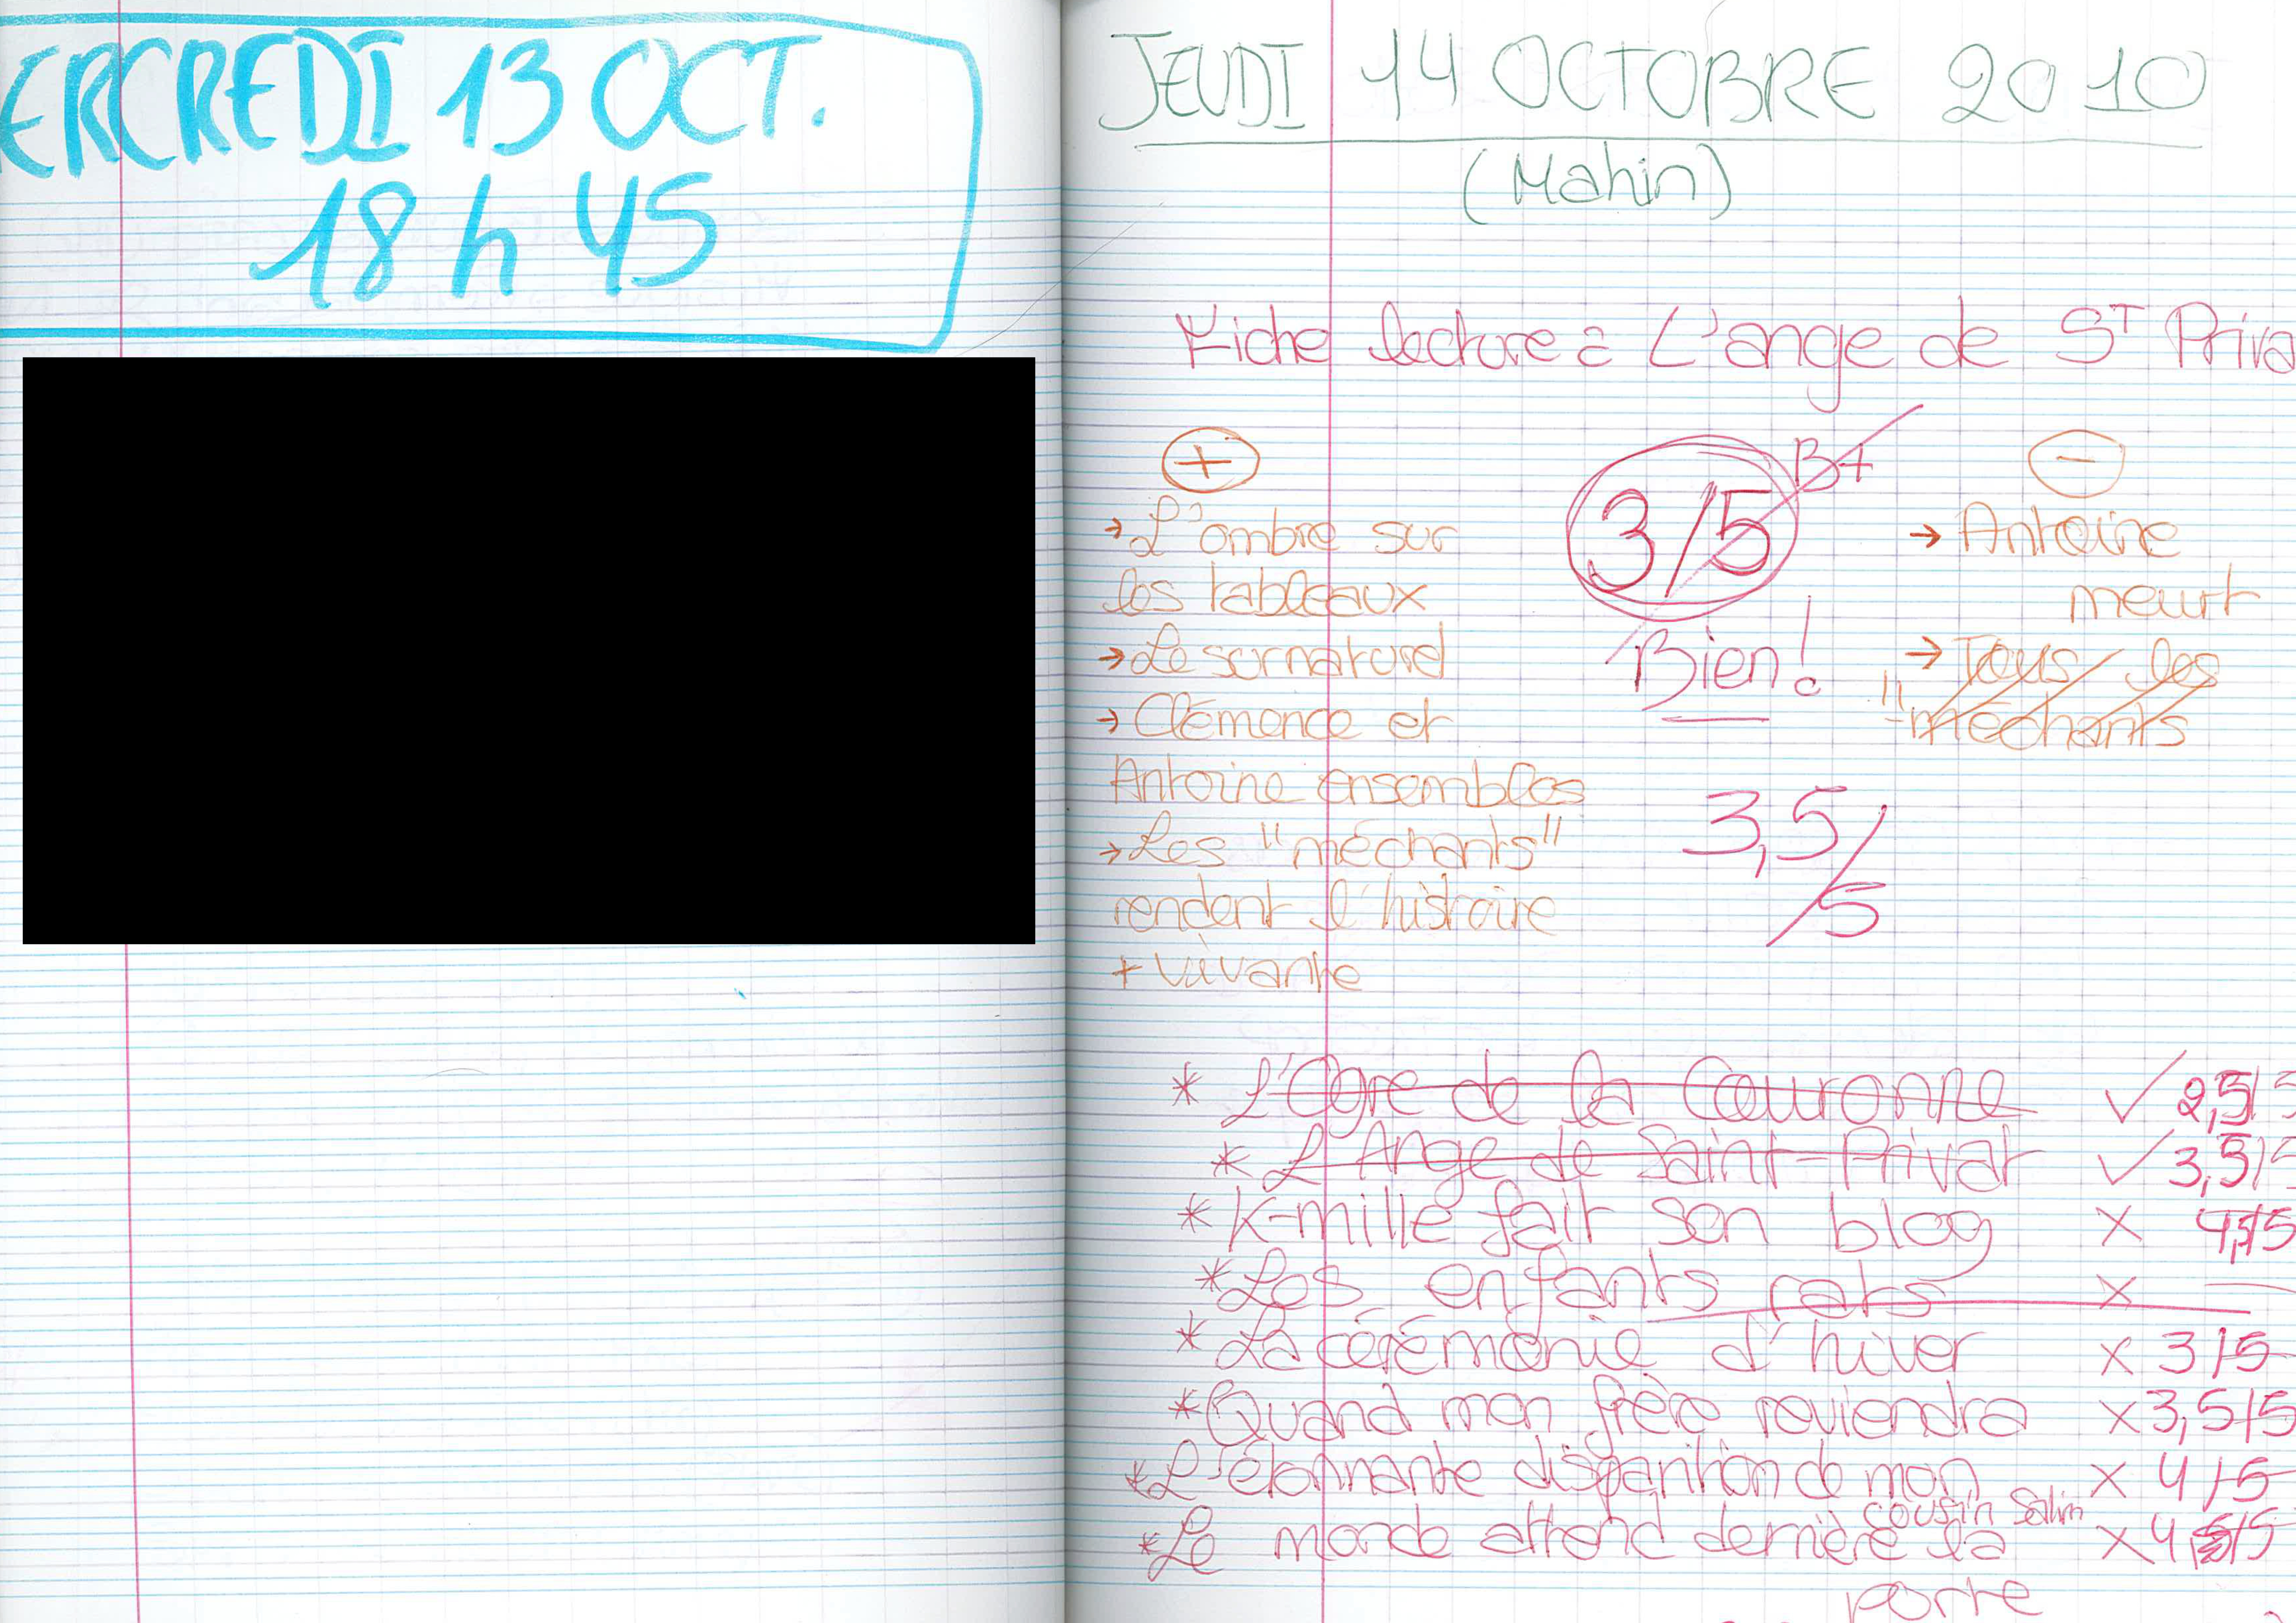 ERCREDI 13 OCT.
18 h 45
JEUDI 14 OCTOBRE 2010
(Mahin)
Fiche lecture : L'ange de ST Priva
+
3/5
B+
-
→ L'ombre sur
les tableaux
→ Le surnaturel
→ Clémence et
Antoine ensembles
→ Les "méchants"
rendent l'histoire
+ vivante
Bien!
3,5/5
→ Antoine
meurt
→ Tous les
"méchants
* L'Ogre de la Couronne ✓ 2,5/5
* L'Ange de Saint-Privat ✓ 3,5/5
* K-mille fait son blog x
* Les enfants rats x —
* La cérémonie d'hiver x 3/5
* Quand mon frère reviendra x 3,5/5
* L'étonnante disparition de mon x 4/5
cousin Salim
* Le monde attend derrière la x
porte